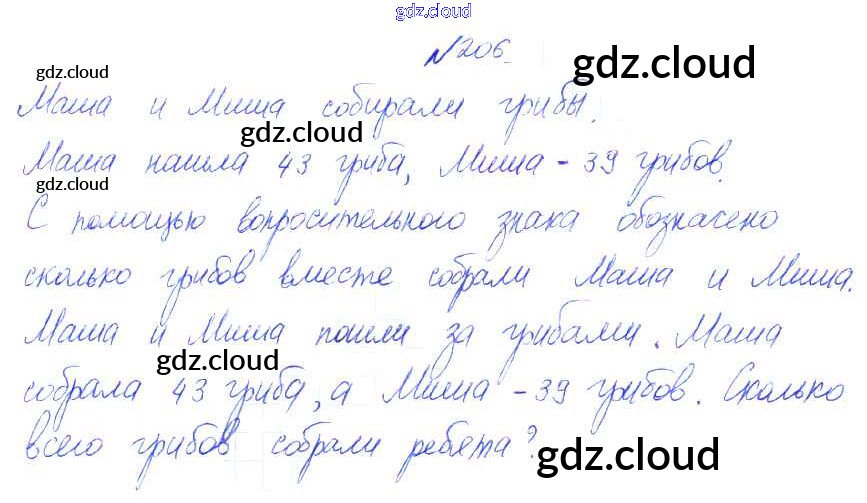 gdz.cloud
№206 gdz.cloud
gdz.cloud
Маша и Миша собирали грибы.
gdz.cloud
Маша нашла 43 гриба, Миша - 39 грибов.
gdz.cloud
С помощью вопросительного знака обозначено
сколько грибов вместе собрали Маша и Миша.
Маша и Миша пошли за грибами. Маша
gdz.cloud
собрала 43 гриба, а Миша - 39 грибов. Сколько
всего грибов собрали ребята?
gdz.cloud